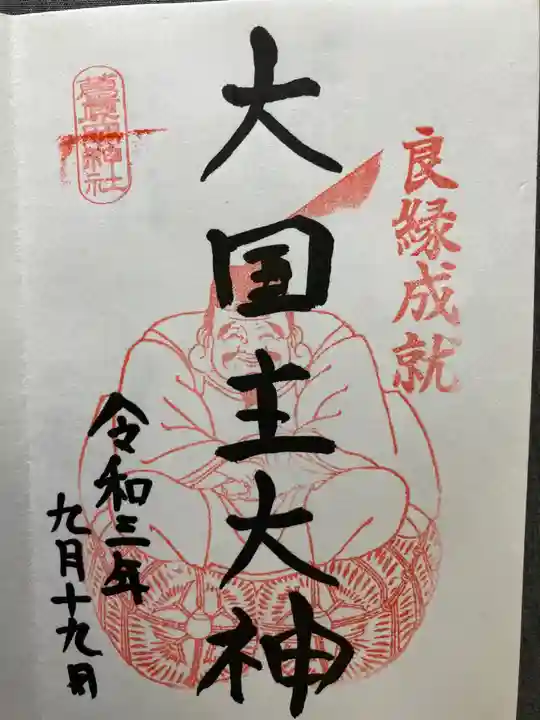 良縁成就
大国主大神
神社
令和三年
九月十九日